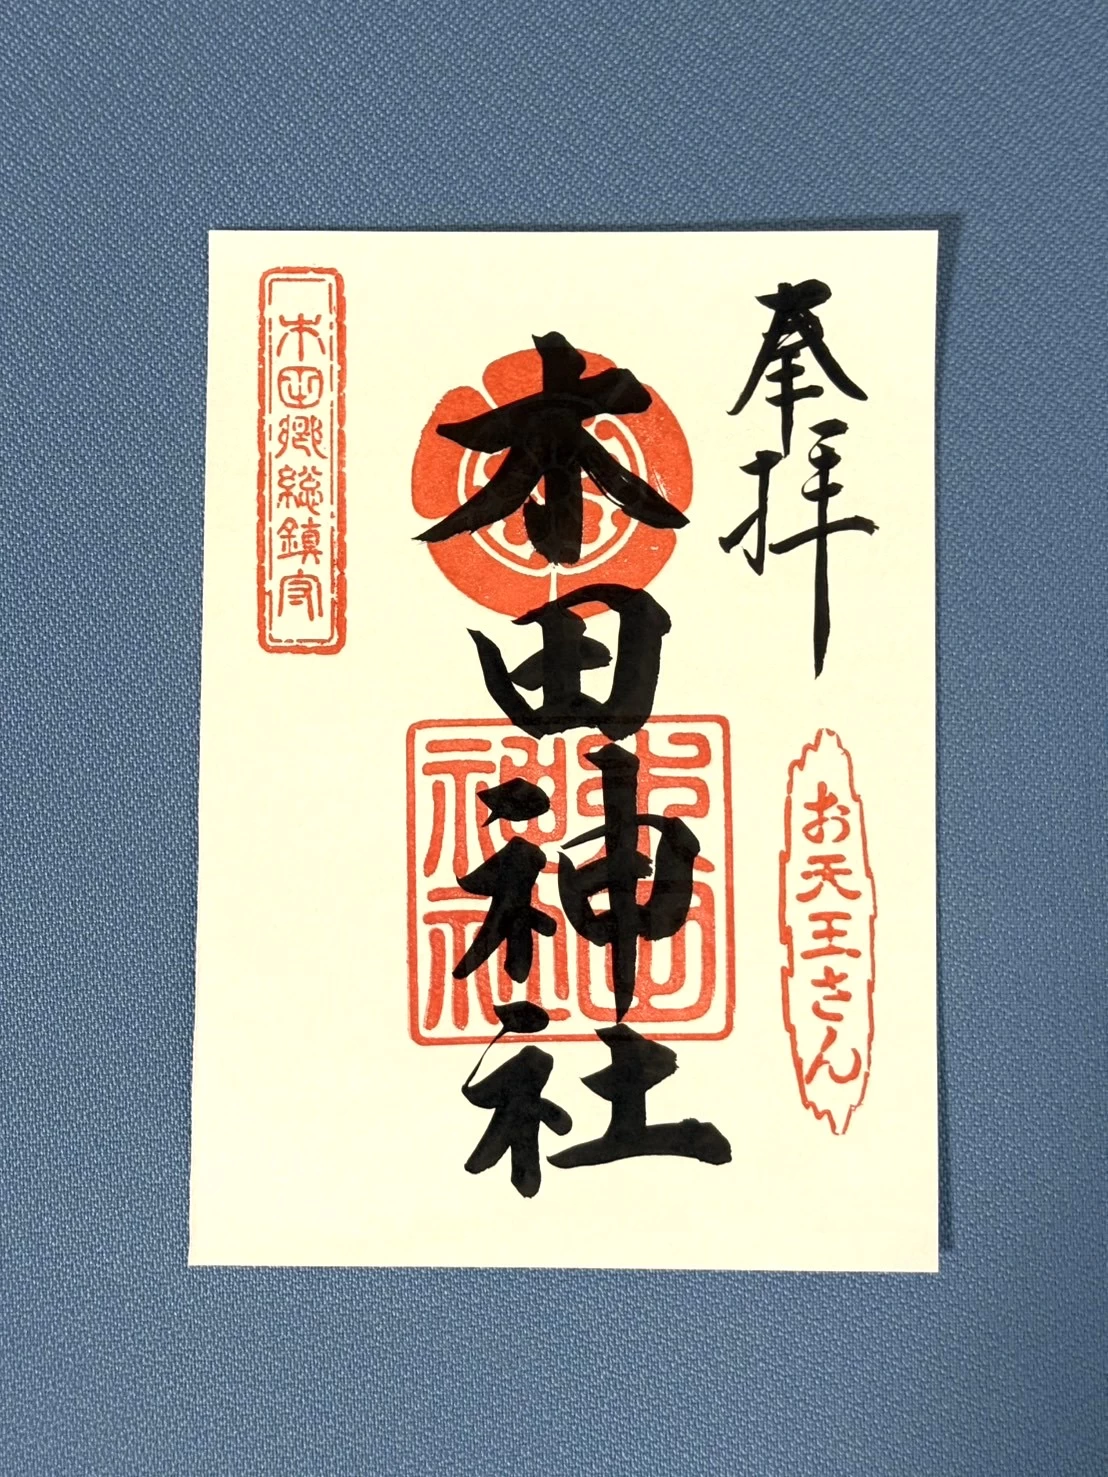 奉拝
お天王さん
木田神社
木田神社
木田郷総鎮守